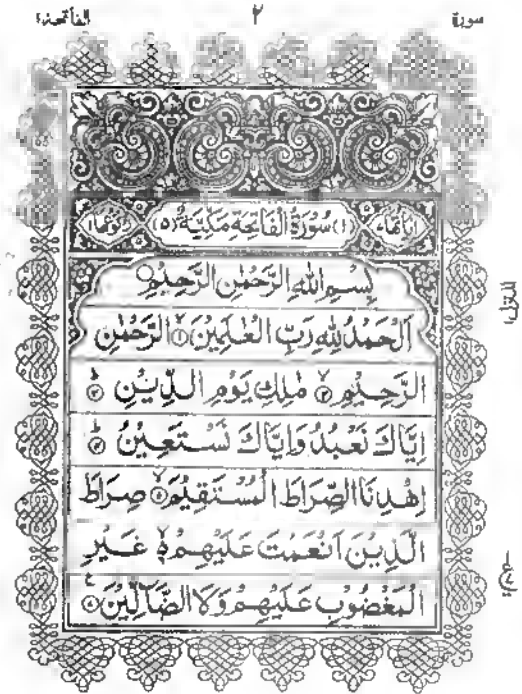 سورة ٢ الفاتحة ١
اٰیاتھا ٧ (١) سُوْرَةُ الْفَاتِحَةِ مَكِّیَّةٌ (٥) رکوعھا ١
بِسْمِ اللّٰهِ الرَّحْمٰنِ الرَّحِیْمِ
اَلْحَمْدُ لِلّٰهِ رَبِّ الْعٰلَمِیْنَ ۙ﴿۱﴾ الرَّحْمٰنِ
الرَّحِیْمِ ۙ﴿۲﴾ مٰلِكِ یَوْمِ الدِّیْنِ ؕ﴿۳﴾
اِیَّاكَ نَعْبُدُ وَاِیَّاكَ نَسْتَعِیْنُ ؕ﴿۴﴾
اِهْدِنَا الصِّرَاطَ الْمُسْتَقِیْمَ ۙ﴿۵﴾ صِرَاطَ
الَّذِیْنَ اَنْعَمْتَ عَلَیْهِمْ ۙ﴿۶﴾ غَیْرِ
الْمَغْضُوْبِ عَلَیْهِمْ وَلَا الضَّآلِّیْنَ ﴿۷﴾